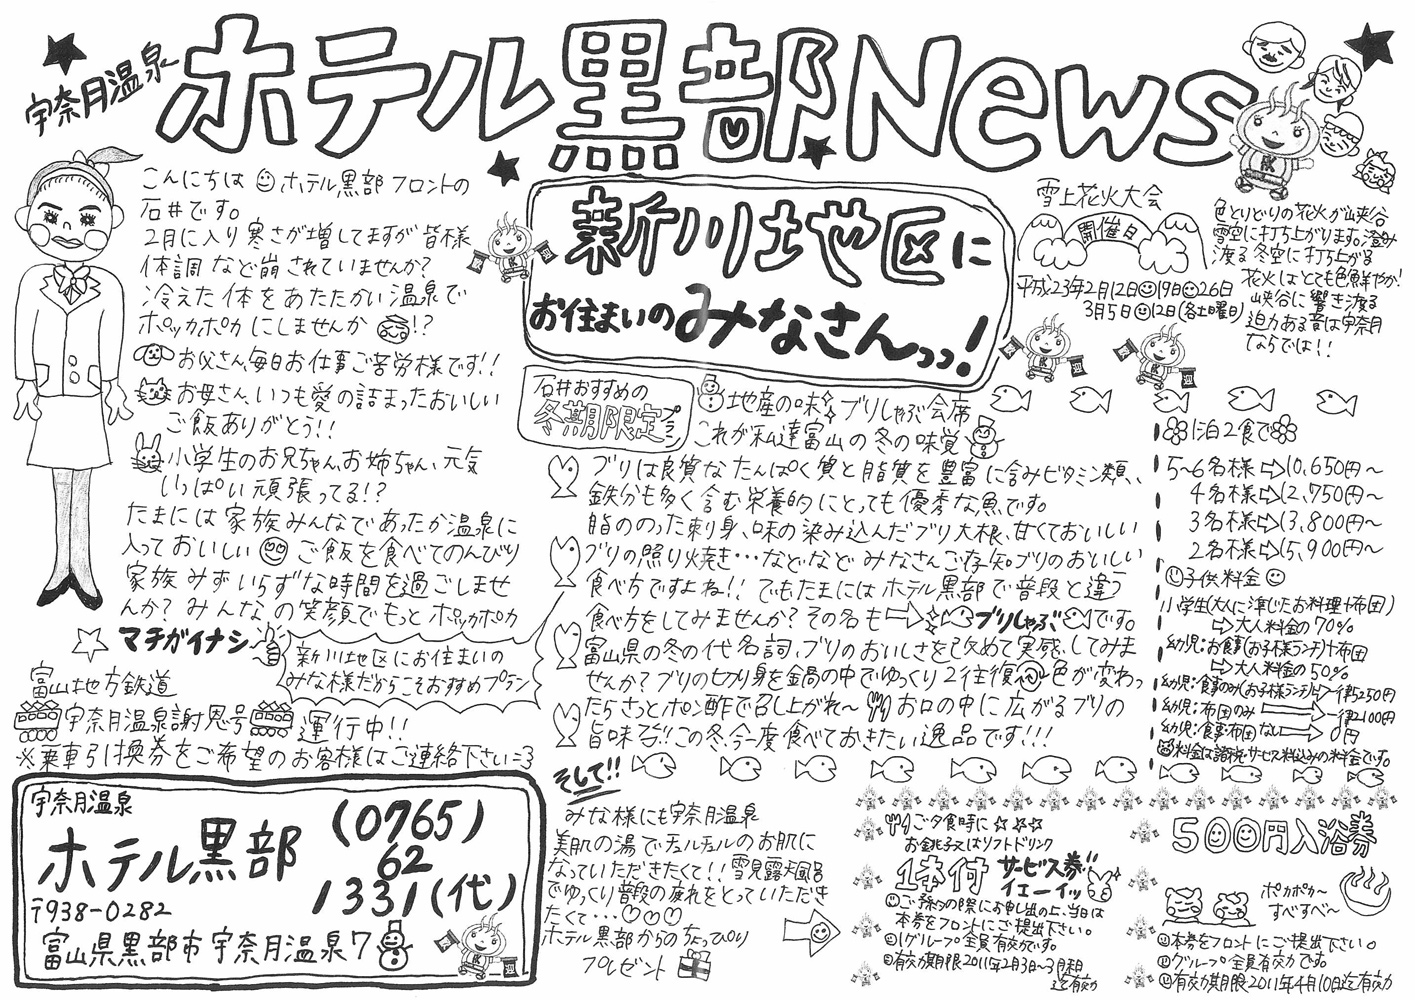 宇奈月温泉
ホテル黒部News
こんにちは ホテル黒部フロントの
石井です。
2月に入り寒さが増してますが皆様
体調など崩されていませんか?
冷えた体をあたたかい温泉で
ポッカポカにしませんか!?
お父さん毎日お仕事ご苦労様です!!
お母さんいつも愛の詰まったおいしい
ご飯ありがとう!!
小学生のお兄ちゃん、お姉ちゃん、元気
いっぱい頑張ってる!?
たまには家族みんなであったか温泉に
入っておいしいご飯を食べてのんびり
家族みずいらずな時間を過ごしませ
んか?みんなの笑顔でもっとポッカポカ
マチガイナシ
新川地区にお住まいの
みな様だからこそおすすめプラン
富山地方鉄道
宇奈月温泉謝恩号 運行中!!
※乗車引換券をご希望のお客様はご連絡下さい=3
宇奈月温泉
ホテル黒部
(0765)
62
1331(代)
〒938-0282
富山県黒部市宇奈月温泉7
新川地区に
お住まいのみなさんっっ!
雪上花火大会
開催日
平成23年2月12日19日26日
3月5日12日(各土曜日)
色とりどりの花火が峡谷
雪空に打ち上がります。澄み
渡る冬空に打ち上がる
花火はとても色鮮やか!
峡谷に響き渡る
迫力ある音は宇奈月
ならでは!!
石井おすすめの
冬期限定プラン
地産の味 ブリしゃぶ会席
これが私達富山の冬の味覚
ブリは良質なたんぱく質と脂質を豊富に含みビタミン類、
鉄分も多く含む栄養的にとっても優秀な魚です。
脂ののった刺身、味の染み込んだブリ大根、甘くておいしい
ブリの照り焼き…などなど みなさんご存知ブリのおいしい
食べ方ですよね!! でもたまにはホテル黒部で普段と違う
食べ方をしてみませんか?その名も ブリしゃぶ です。
富山県の冬の代名詞、ブリのおいしさを改めて実感してみま
せんか?ブリの切り身を金鍋の中でゆっくり2往復 色が変わっ
たらさっとポン酢で召し上がれ~ お口の中に広がるブリの
旨味 この冬、今一度食べておきたい逸品です!!!
1泊2食で
5~6名様⇨10,650円~
4名様⇨12,750円~
3名様⇨13,800円~
2名様⇨15,900円~
子供料金
小学生(大人に準じたお料理+布団)
⇨大人料金の70%
幼児:お食事(お子様ランチ)+布団
⇨大人料金の50%
幼児:食事のみ(お子様ランチ)⇨一律5250円
幼児:布団のみ⇨一律2100円
幼児:食事・布団なし⇨0円
料金は諸税・サービス料込みの料金です。
そして!!
みな様にも宇奈月温泉
美肌の湯でチュルチュルのお肌に
なっていただきたくて!!雪見露天風呂
でゆっくり普段の疲れをとっていただき
たくて…♡♡♡
ホテル黒部からのちょっぴり
プレゼント
ご夕食時に☆☆☆
お銚子又はソフトドリンク
1本付 サービス券!!
イエーイッ
ご予約の際にお申し出の上、当日は
本券をフロントにご提出下さい。
1グループ全員有効です。
有効期限2011年2月3日~3月末日
迄有効
500円入浴券
ポカポカ~
すべすべ~
本券をフロントにご提出下さい。
1グループ全員有効です。
有効期限2011年4月10日迄有効